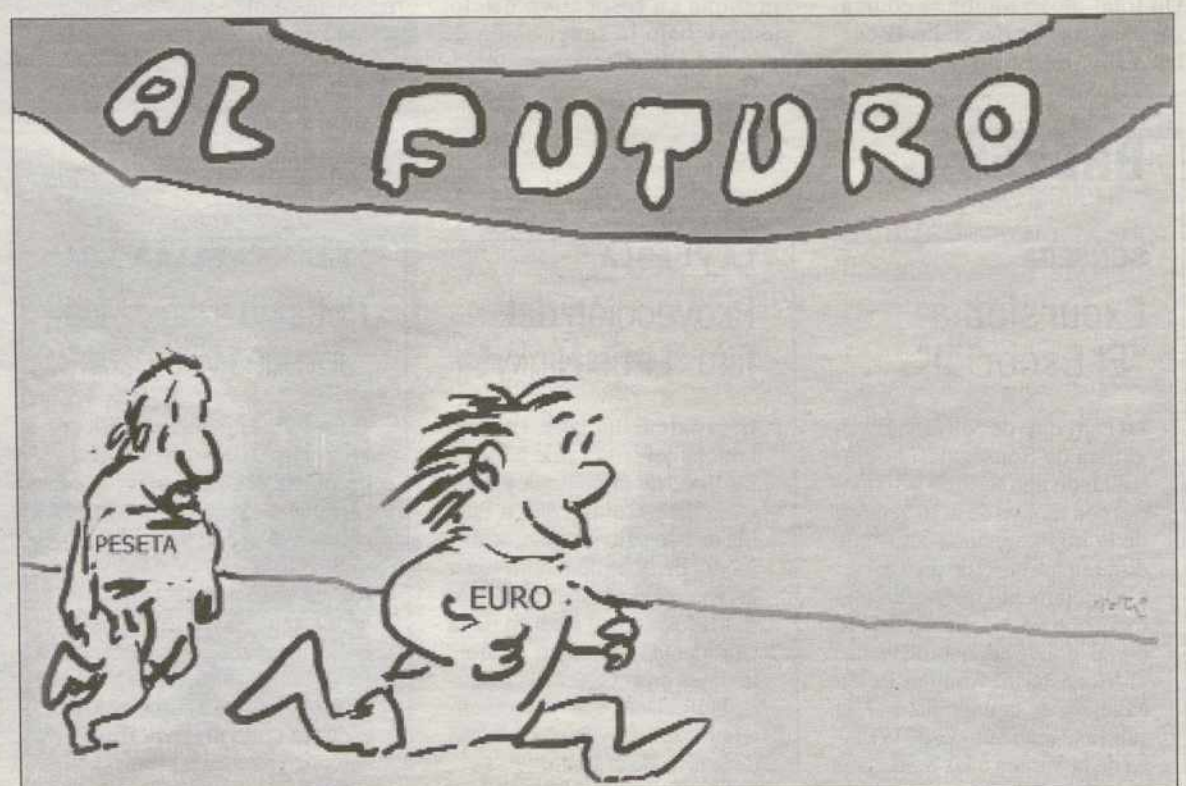 AL FUTURO
PESETA
EURO